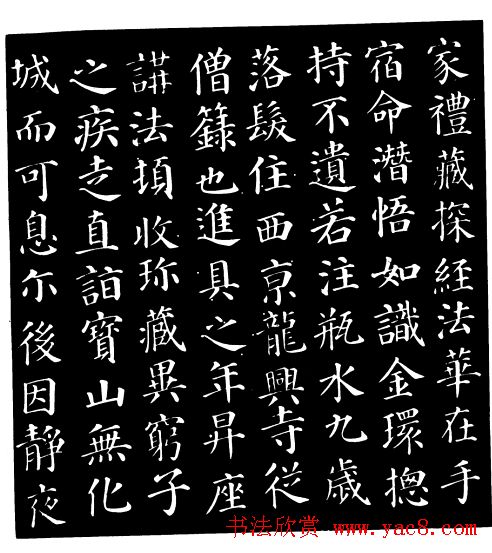 家禮藏探經法華在手
宿命潛悟如識金環揔
持不遺若注瓶水九歲
落髮住西京龍興寺從
僧籙也進具之年昇座
講法頓收珎藏異窮子
之疾走直詣寶山無化
城而可息尒後因靜夜
书法欣赏 www.yac8.com